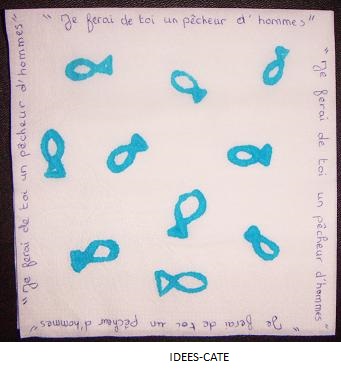 "Je ferai de toi un pêcheur d'hommes"
"Je ferai de toi un pêcheur d'hommes"
"Je ferai de toi un pêcheur d'hommes"
"Je ferai de toi un pêcheur d'hommes"
IDEES-CATE